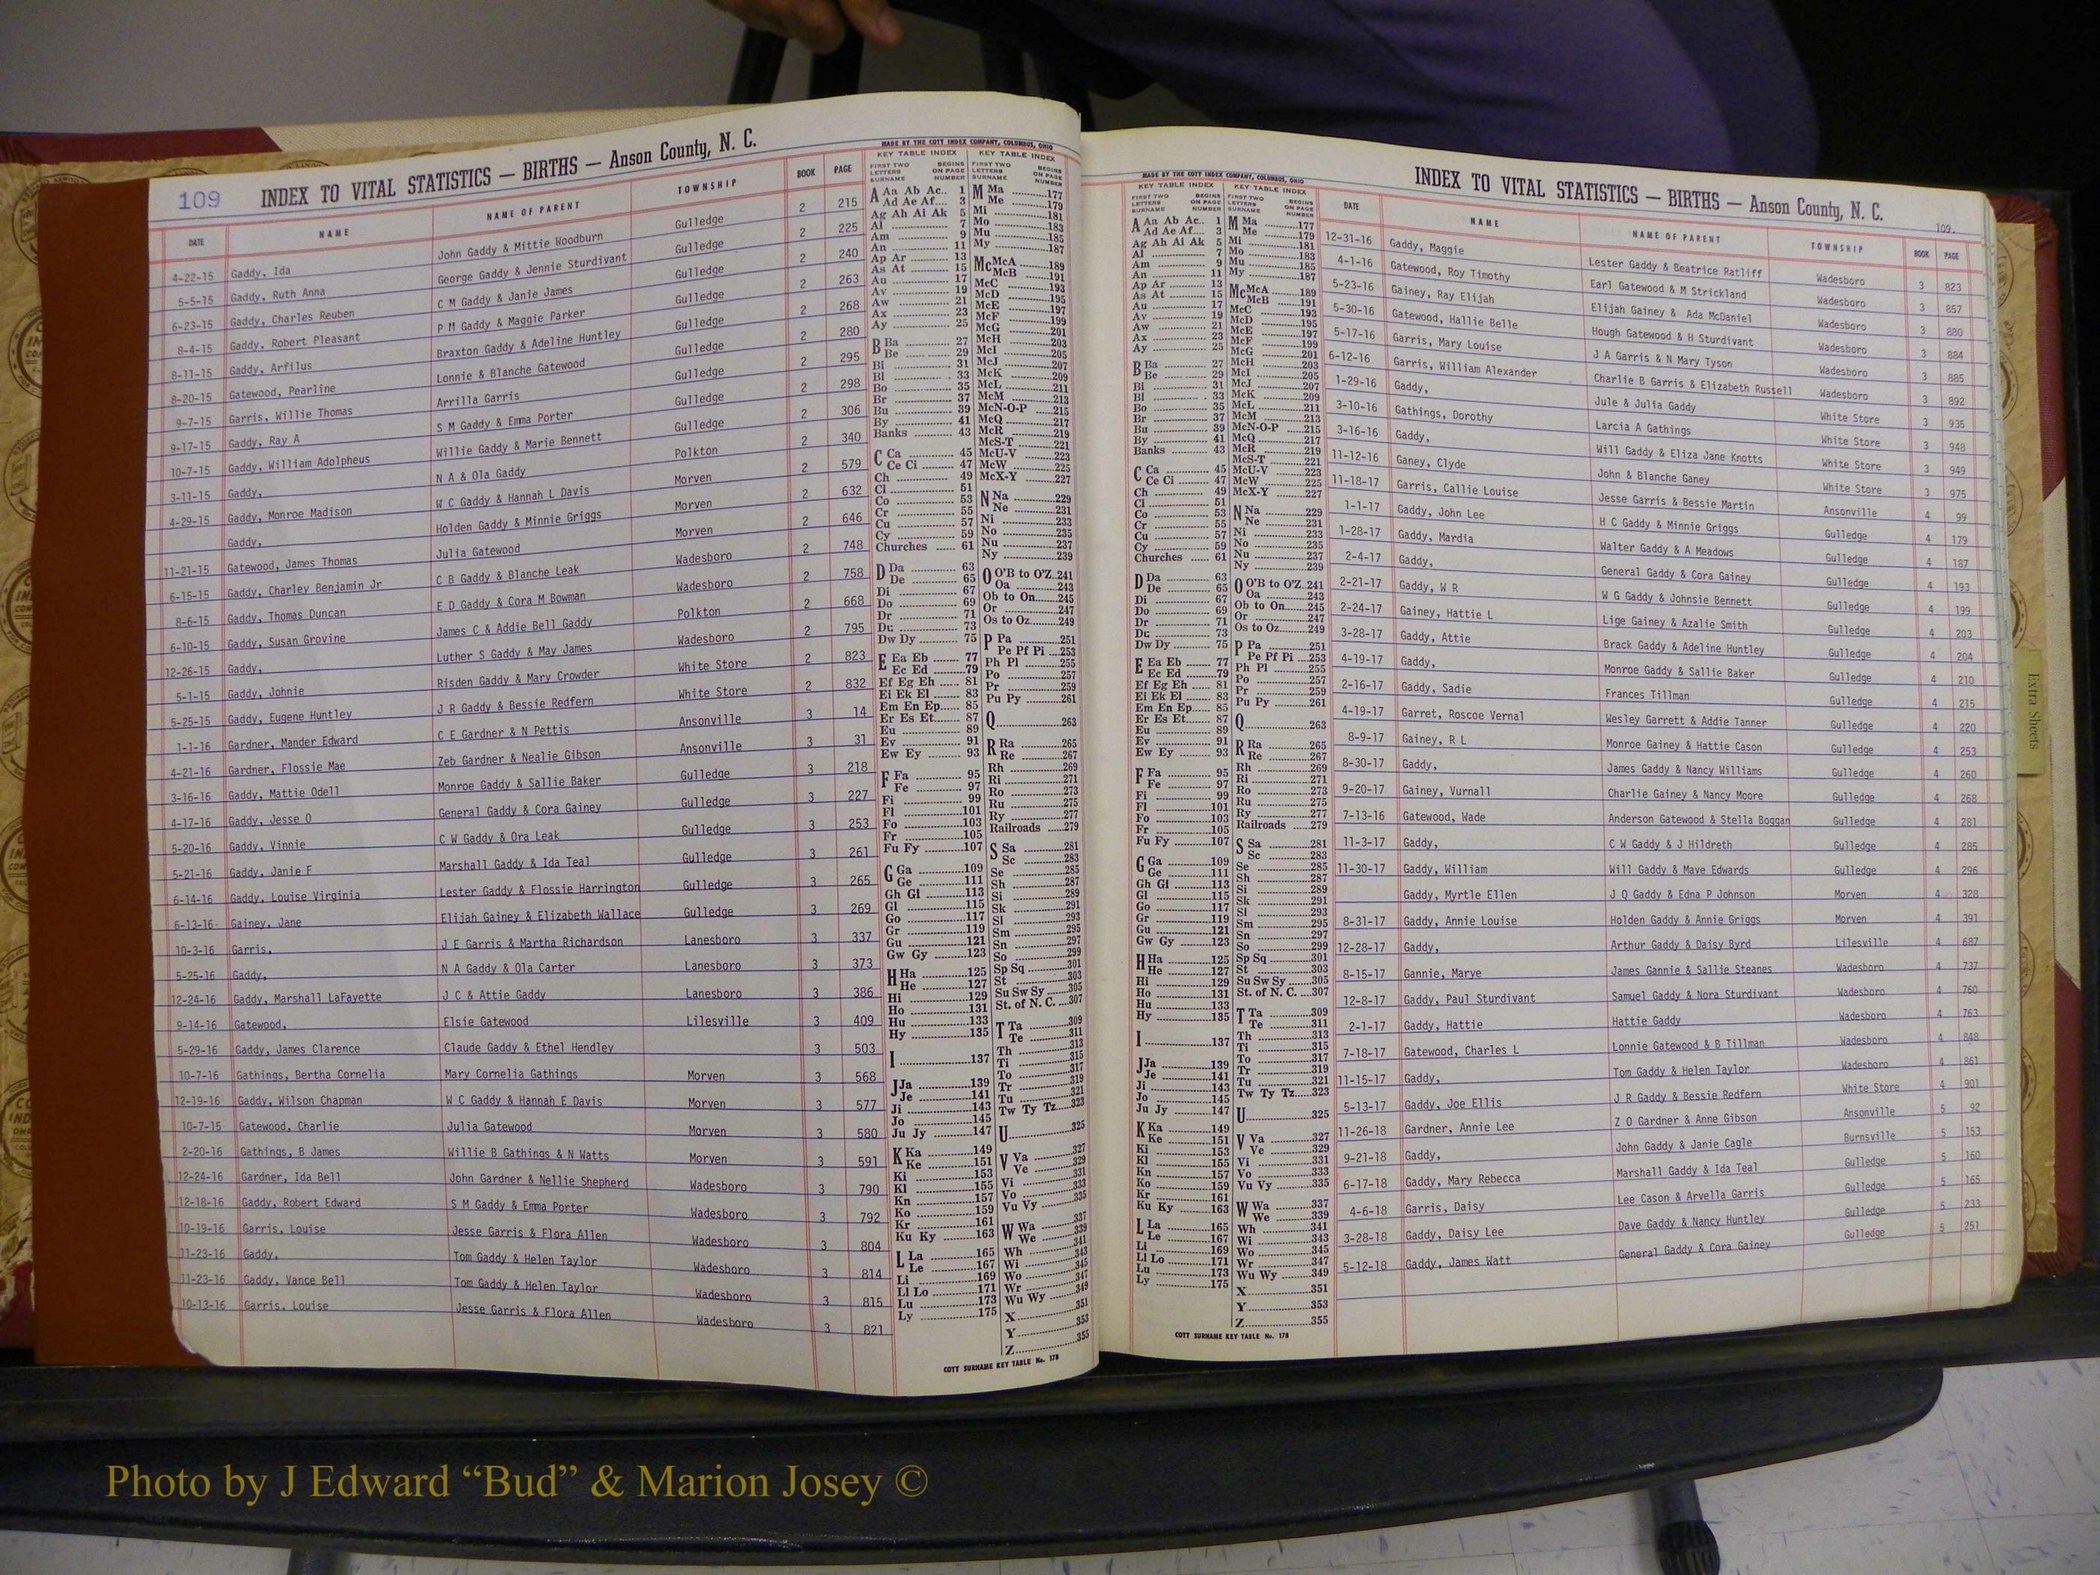 109
INDEX TO VITAL STATISTICS — BIRTHS — Anson County, N. C.
DATE NAME NAME OF PARENT TOWNSHIP BOOK PAGE
4-22-15 Gaddy, Ida John Gaddy & Mittie Woodburn Gulledge 2 215
5-5-15 Gaddy, Ruth Anna George Gaddy & Jennie Sturdivant Gulledge 2 225
6-23-15 Gaddy, Charles Reuben C M Gaddy & Janie James Gulledge 2 240
8-4-15 Gaddy, Robert Pleasant P M Gaddy & Maggie Parker Gulledge 2 263
8-11-15 Gaddy, Arfilus Braxton Gaddy & Adeline Huntley Gulledge 2 268
8-20-15 Gatewood, Pearline Lonnie & Blanche Gatewood Gulledge 2 280
9-7-15 Garris, Willie Thomas Arrilla Garris Gulledge 2 295
9-17-15 Gaddy, Ray A S M Gaddy & Emma Porter Gulledge 2 298
10-7-15 Gaddy, William Adolpheus Willie Gaddy & Marie Bennett Gulledge 2 306
3-11-15 Gaddy, N A & Ola Gaddy Polkton 2 340
4-29-15 Gaddy, Monroe Madison W C Gaddy & Hannah L Davis Morven 2 579
Gaddy, Holden Gaddy & Minnie Griggs Morven 2 632
11-21-15 Gatewood, James Thomas Julia Gatewood Morven 2 646
6-15-15 Gaddy, Charley Benjamin Jr C B Gaddy & Blanche Leak Wadesboro 2 748
8-6-15 Gaddy, Thomas Duncan E D Gaddy & Cora M Bowman Wadesboro 2 758
6-10-15 Gaddy, Susan Grovine James C & Addie Bell Gaddy Polkton 2 668
12-26-15 Gaddy, Luther S Gaddy & May James Wadesboro 2 795
5-1-15 Gaddy, Johnie Risden Gaddy & Mary Crowder White Store 2 823
5-25-15 Gaddy, Eugene Huntley J R Gaddy & Bessie Redfern White Store 2 832
1-1-16 Gardner, Mander Edward C E Gardner & N Pettis Ansonville 3 14
4-21-16 Gardner, Flossie Mae Zeb Gardner & Nealie Gibson Ansonville 3 31
3-16-16 Gaddy, Mattie Odell Monroe Gaddy & Sallie Baker Gulledge 3 218
4-17-16 Gaddy, Jesse O General Gaddy & Cora Gainey Gulledge 3 227
5-20-16 Gaddy, Vinnie C W Gaddy & Ora Leak Gulledge 3 253
5-21-16 Gaddy, Janie F Marshall Gaddy & Ida Teal Gulledge 3 261
6-14-16 Gaddy, Louise Virginia Lester Gaddy & Flossie Harrington Gulledge 3 265
6-13-16 Gainey, Jane Elijah Gainey & Elizabeth Wallace Gulledge 3 269
10-3-16 Garris, J E Garris & Martha Richardson Lanesboro 3 337
5-25-16 Gaddy, N A Gaddy & Ola Carter Lanesboro 3 373
12-24-16 Gaddy, Marshall LaFayette J C & Attie Gaddy Lanesboro 3 386
9-14-16 Gatewood, Elsie Gatewood Lilesville 3 409
5-29-16 Gaddy, James Clarence Claude Gaddy & Ethel Hendley 3 503
10-7-16 Gathings, Bertha Cornelia Mary Cornelia Gathings Morven 3 568
12-19-16 Gaddy, Wilson Chapman W C Gaddy & Hannah E Davis Morven 3 577
10-7-15 Gatewood, Charlie Julia Gatewood Morven 3 580
2-20-16 Gathings, B James Willie B Gathings & N Watts Morven 3 591
12-24-16 Gardner, Ida Bell John Gardner & Nellie Shepherd Wadesboro 3 790
12-18-16 Gaddy, Robert Edward S M Gaddy & Emma Porter Wadesboro 3 792
10-19-16 Garris, Louise Jesse Garris & Flora Allen Wadesboro 3 804
11-23-16 Gaddy, Tom Gaddy & Helen Taylor Wadesboro 3 814
11-23-16 Gaddy, Vance Bell Tom Gaddy & Helen Taylor Wadesboro 3 815
10-13-16 Garris, Louise Jesse Garris & Flora Allen Wadesboro 3 821
MADE BY THE COTT INDEX COMPANY, COLUMBUS, OHIO
KEY TABLE INDEX KEY TABLE INDEX
FIRST TWO LETTERS SURNAME BEGINS ON PAGE NUMBER
A Aa Ab Ac.. 1
Ad Ae Af.... 3
Ag Ah Ai Ak 5
Al 7
Am 9
An 11
Ap Ar 13
As At 15
Au 17
Av 19
Aw 21
Ax 23
Ay 25
B Ba 27
Be 29
Bi 31
Bl 33
Bo 35
Br 37
Bu 39
By 41
Banks 43
C Ca 45
Ce Ci 47
Ch 49
Cl 51
Co 53
Cr 55
Cu 57
Cy 59
Churches 61
D Da 63
De 65
Di 67
Do 69
Dr 71
Du 73
Dw Dy 75
E Ea Eb 77
Ec Ed 79
Ef Eg Eh 81
Ei Ek El 83
Em En Ep 85
Er Es Et 87
Eu 89
Ev 91
Ew Ey 93
F Fa 95
Fe 97
Fi 99
Fl 101
Fo 103
Fr 105
Fu Fy 107
G Ga 109
Ge 111
Gh Gi 113
Gl 115
Go 117
Gr 119
Gu 121
Gw Gy 123
H Ha 125
He 127
Hi 129
Ho 131
Hu 133
Hy 135
I 137
J Ja 139
Je 141
Ji 143
Jo 145
Ju Jy 147
K Ka 149
Ke 151
Ki 153
Kl 155
Kn 157
Ko 159
Kr 161
Ku Ky 163
L La 165
Le 167
Li 169
Ll Lo 171
Lu 173
Ly 175
M Ma 177
Me 179
Mi 181
Mo 183
Mu 185
My 187
Mc McA 189
McB 191
McC 193
McD 195
McE 197
McF 199
McG 201
McH 203
McI 205
McJ 207
McK 209
McL 211
McM 213
McN-O-P 215
McQ 217
McR 219
McS-T 221
McU-V 223
McW 225
McX-Y 227
N Na 229
Ne 231
Ni 233
No 235
Nu 237
Ny 239
O O'B to O'Z 241
Oa 243
Ob to On 245
Or 247
Os to Oz 249
P Pa 251
Pe Pf Pi 253
Ph Pl 255
Po 257
Pr 259
Pu Py 261
Q 263
R Ra 265
Re 267
Rh 269
Ri 271
Ro 273
Ru 275
Ry 277
Railroads 279
S Sa 281
Sc 283
Se 285
Sh 287
Si 289
Sk 291
Sl 293
Sm 295
Sn 297
So 299
Sp Sq 301
St 303
Su Sw Sy 305
St. of N. C. 307
T Ta 309
Te 311
Th 313
Ti 315
To 317
Tr 319
Tu 321
Tw Ty Tz 323
U 325
V Va 327
Ve 329
Vi 331
Vo 333
Vu Vy 335
W Wa 337
We 339
Wh 341
Wi 343
Wo 345
Wr 347
Wu Wy 349
X 351
Y 353
Z 355
COTT SURNAME KEY TABLE No. 178
MADE BY THE COTT INDEX COMPANY, COLUMBUS, OHIO
KEY TABLE INDEX KEY TABLE INDEX
FIRST TWO LETTERS SURNAME BEGINS ON PAGE NUMBER
COTT SURNAME KEY TABLE No. 178
INDEX TO VITAL STATISTICS — BIRTHS — Anson County, N. C.
109.
DATE NAME NAME OF PARENT TOWNSHIP BOOK PAGE
12-31-16 Gaddy, Maggie Lester Gaddy & Beatrice Ratliff Wadesboro 3 823
4-1-16 Gatewood, Roy Timothy Earl Gatewood & M Strickland Wadesboro 3 857
5-23-16 Gainey, Ray Elijah Elijah Gainey & Ada McDaniel Wadesboro 3 880
5-30-16 Gatewood, Hallie Belle Hough Gatewood & H Sturdivant Wadesboro 3 884
5-17-16 Garris, Mary Louise J A Garris & N Mary Tyson Wadesboro 3 885
6-12-16 Garris, William Alexander Charlie B Garris & Elizabeth Russell Wadesboro 3 892
1-29-16 Gaddy, Jule & Julia Gaddy White Store 3 935
3-10-16 Gathings, Dorothy Larcia A Gathings White Store 3 948
3-16-16 Gaddy, Will Gaddy & Eliza Jane Knotts White Store 3 949
11-12-16 Ganey, Clyde John & Blanche Ganey White Store 3 975
11-18-17 Garris, Callie Louise Jesse Garris & Bessie Martin Ansonville 4 99
1-1-17 Gaddy, John Lee H C Gaddy & Minnie Griggs Gulledge 4 179
1-28-17 Gaddy, Mardia Walter Gaddy & A Meadows Gulledge 4 187
2-4-17 Gaddy, General Gaddy & Cora Gainey Gulledge 4 193
2-21-17 Gaddy, W R W G Gaddy & Johnsie Bennett Gulledge 4 199
2-24-17 Gainey, Hattie L Lige Gainey & Azalie Smith Gulledge 4 203
3-28-17 Gaddy, Attie Brack Gaddy & Adeline Huntley Gulledge 4 204
4-19-17 Gaddy, Monroe Gaddy & Sallie Baker Gulledge 4 210
2-16-17 Gaddy, Sadie Frances Tillman Gulledge 4 215
4-19-17 Garret, Roscoe Vernal Wesley Garrett & Addie Tanner Gulledge 4 220
8-9-17 Gainey, R L Monroe Gainey & Hattie Cason Gulledge 4 253
8-30-17 Gaddy, James Gaddy & Nancy Williams Gulledge 4 260
9-20-17 Gainey, Vurnall Charlie Gainey & Nancy Moore Gulledge 4 268
7-13-16 Gatewood, Wade Anderson Gatewood & Stella Boggan Gulledge 4 281
11-3-17 Gaddy, C W Gaddy & J Hildreth Gulledge 4 285
11-30-17 Gaddy, William Will Gaddy & Mave Edwards Gulledge 4 296
Gaddy, Myrtle Ellen J Q Gaddy & Edna P Johnson Morven 4 328
8-31-17 Gaddy, Annie Louise Holden Gaddy & Annie Griggs Morven 4 391
12-28-17 Gaddy, Arthur Gaddy & Daisy Byrd Lilesville 4 687
8-15-17 Gannie, Marye James Gannie & Sallie Steanes Wadesboro 4 737
12-8-17 Gaddy, Paul Sturdivant Samuel Gaddy & Nora Sturdivant Wadesboro 4 760
2-1-17 Gaddy, Hattie Hattie Gaddy Wadesboro 4 763
7-18-17 Gatewood, Charles L Lonnie Gatewood & B Tillman Wadesboro 4 848
11-15-17 Gaddy, Tom Gaddy & Helen Taylor Wadesboro 4 861
5-13-17 Gaddy, Joe Ellis J R Gaddy & Bessie Redfern White Store 4 901
11-26-18 Gardner, Annie Lee Z O Gardner & Anne Gibson Ansonville 5 92
9-21-18 Gaddy, John Gaddy & Janie Cagle Burnsville 5 153
6-17-18 Gaddy, Mary Rebecca Marshall Gaddy & Ida Teal Gulledge 5 160
4-6-18 Garris, Daisy Lee Cason & Arvella Garris Gulledge 5 165
3-28-18 Gaddy, Daisy Lee Dave Gaddy & Nancy Huntley Gulledge 5 233
5-12-18 Gaddy, James Watt General Gaddy & Cora Gainey Gulledge 5 251
Extra Sheets
Photo by J Edward “Bud” & Marion Josey ©